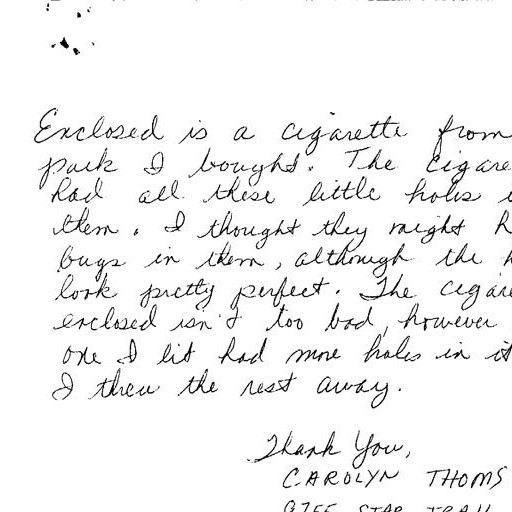 Enclosed is a cigarette from
pack I bought. The cigare
had all these little holes i
them. I thought they might h
bugs in them, although the h
look pretty perfect. The cigare
enclosed isn't too bad, however
one I lit had more holes in it
I threw the rest away.
Thank You,
CAROLYN THOMS
STAR TRAIL